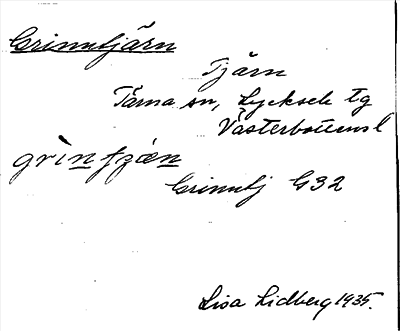 Grinntjärn
Tjärn
Tärna sn, Lycksele tg
Västerbottens l
grìntjæ̀n
Grinntj G32
Lisa Lidberg 1935.